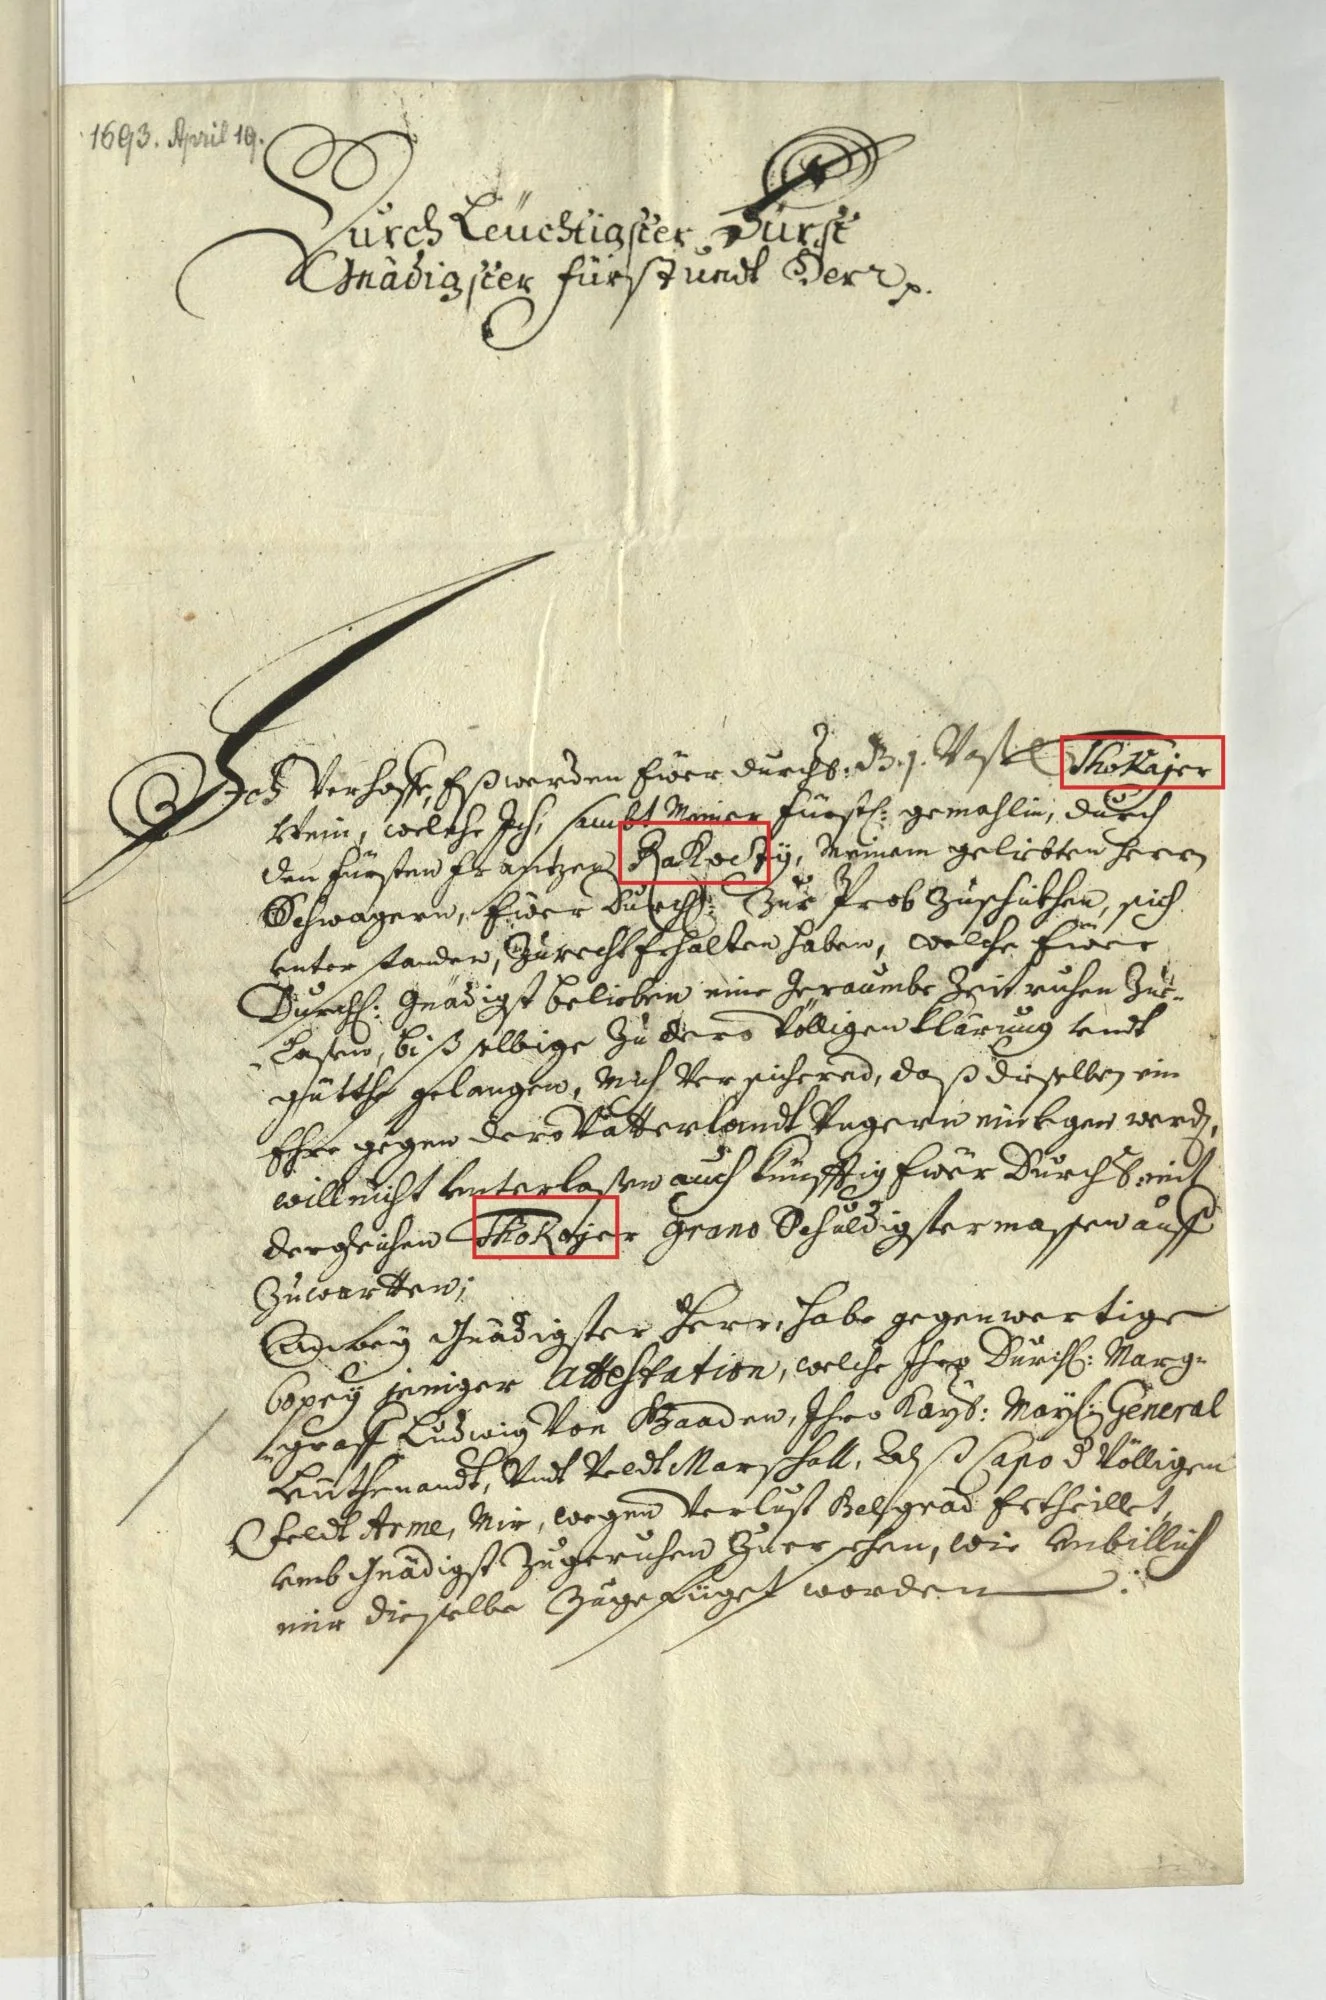 1693. April 19.
Durch Leüchtigster Fürst
Gnädigster Fürst undt Herr p.
Ich Verhoffe, Eß werden Ewer Durchl: Vaßl Thokajer
Wein, welche Ich, sambt Meiner Fürstl: gemahlin, durch
den Fürsten Frantzen Rakoczÿ, Meinem geliebten Herrn
Schwagern, Ewer Durchl: Zur Prob Zuschikhen, sich
unterstanden, Zurecht Erhalten haben, welche Ewer
Durchl: Gnädigst belieben eine geraumbe Zeit ruhen Zue-
Laßen, biß selbige Zu dero Völligen Klärung undt
gütthe gelangen, Mich Versichered, daß dieselben ein
Ehre gegen dero Vatterlandt Ungern einlegen werd,
will nicht unterlaßen auch künfftig Ewer Durchl: mit
dergleichen Thokajer Grano Schuldigster massen auff
Zuwartten;
Gnädigster Herr, habe gegenwertige
Copey jeniger Attestation, welche Ihro Durchl: Marg-
graff Ludwig Von Baaden, Ihro Kayß: Mayl: General
Leüthenandt, Undt Veldt Marschall, Capo d Völligen
Feldt Arme, Mir, wegen Verlust Belgrad Ertheillet,
umb Gnädigst Zugeruhen Zuersehen, wie unbillich
mir dieselbe Zugefüget worden